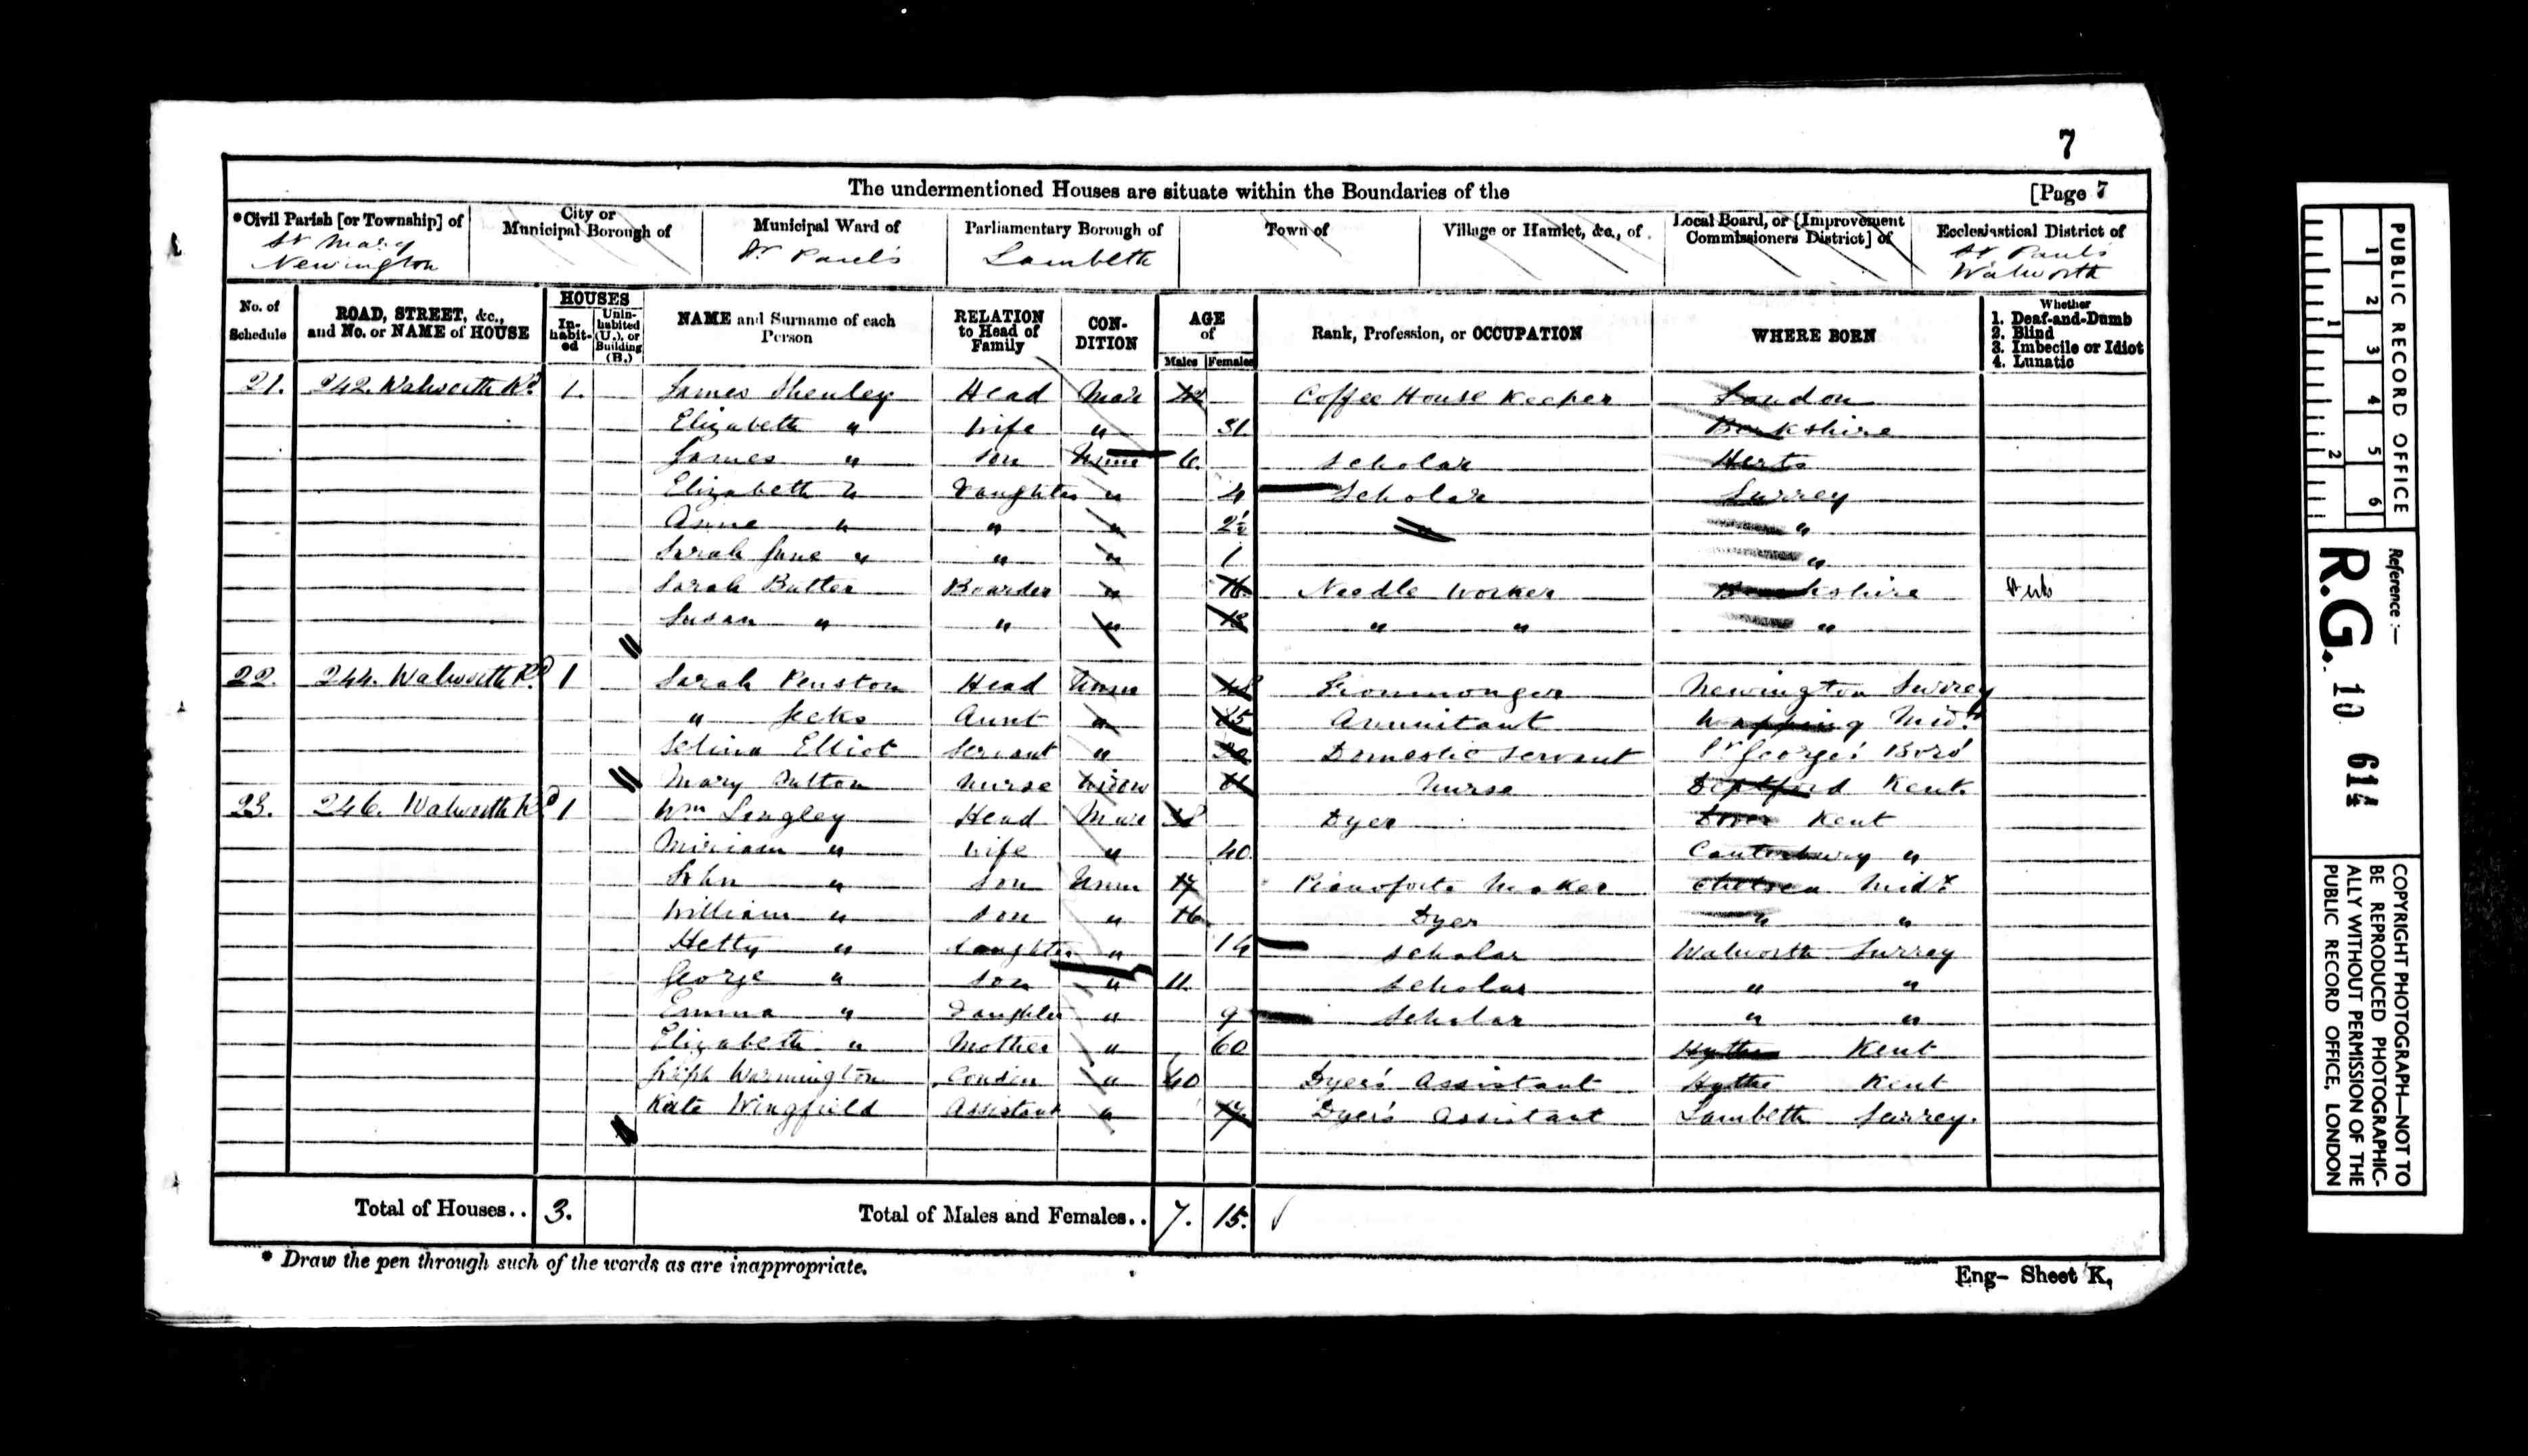 7
The undermentioned Houses are situate within the Boundaries of the [Page 7
*Civil Parish [or Township] of City or Municipal Borough of Municipal Ward of Parliamentary Borough of Town of Village or Hamlet, &c., of Local Board, or [Improvement Commissioners District] of Ecclesiastical District of
St Mary Newington St Paul's Lambeth St Paul's Walworth
No. of Schedule ROAD, STREET, &c., and No. or NAME of HOUSE HOUSES In-habit-ed Unin-habited (U.), or Building (B.) NAME and Surname of each Person RELATION to Head of Family CON-DITION AGE of Males Females Rank, Profession, or OCCUPATION WHERE BORN Whether 1. Deaf-and-Dumb 2. Blind 3. Imbecile or Idiot 4. Lunatic
21. 242. Walworth Rd. 1. James Shenley Head Mar Coffee House Keeper London
Elizabeth " Wife " 31 Berkshire
James " Son Unm 6. Scholar Herts
Elizabeth " Daughter " 4 Scholar Surrey
Anne " " " 2½ " "
Sarah Jane " " " 1 "
Sarah Butler Boarder " 16. Needle Worker
Susan " " " 18 " " "
22. 244. Walworth Rd. 1 Sarah Penston Head Unm 48 Ironmonger Newington Surrey
" Jecks Aunt " Annuitant Wapping Midx
Selina Elliot Servant " Domestic Servant St George's Boro'
Mary Sutton Nurse Widow Nurse Deptford Kent.
23. 246. Walworth Rd 1 Wm Longley Head Mar 38 Dyer Dover Kent
Miriam " Wife " 40. Canterbury "
John " Son Unm 17 Pianoforte Maker Chelsea Midx
William " Son " 16 Dyer " "
Hetty " Daughter " 14 Scholar Walworth Surrey
George " Son " 11. Scholar " "
Emma " Daughter " 9 Scholar " "
Elizabeth " Mother " 60 Hythe Kent
Joseph Warmington Cousin " 40 Dyer's Assistant Hythe Kent
Kate Wingfield Assistant " 17. Dyer's Assistant Lambeth Surrey.
Total of Houses.. 3. Total of Males and Females.. 7. 15.
* Draw the pen through such of the words as are inappropriate.
Eng- Sheet K,
PUBLIC RECORD OFFICE
1 2 3 4 5 6
1 2
Reference:—
R.G. 10 614
COPYRIGHT PHOTOGRAPH—NOT TO
BE REPRODUCED PHOTOGRAPHIC-
ALLY WITHOUT PERMISSION OF THE
PUBLIC RECORD OFFICE, LONDON